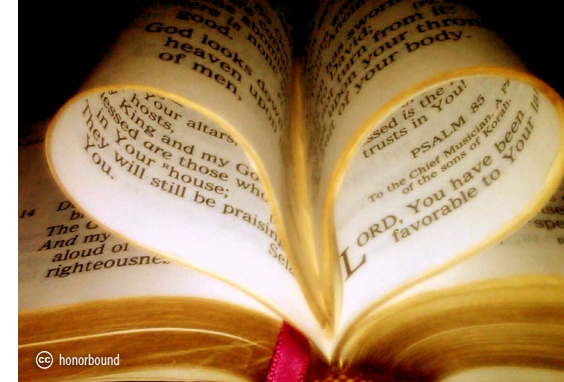 good.
God looks down
heaven upon
of men,
Your altars,
hosts,
King and my Go
essed are those who
in Your house;
They will still be praisin
You.
Sel
14
The
And my
aloud of
righteousnes
from
your thron
of your body.
ssed is the
trusts in You!
PSALM 85
To the Chief Musician. A
of the sons of Korah.
LORD, You have been
favorable to Your
cc honorbound